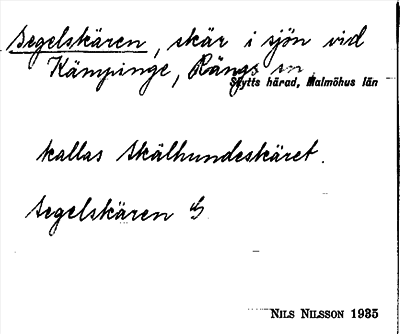 Segelskären, skär i sjön vid
Kämpinge, Rängs sn
Skytts härad, Malmöhus län
kallas Skälhundeskäret.
Segelskären G
NILS NILSSON 1935